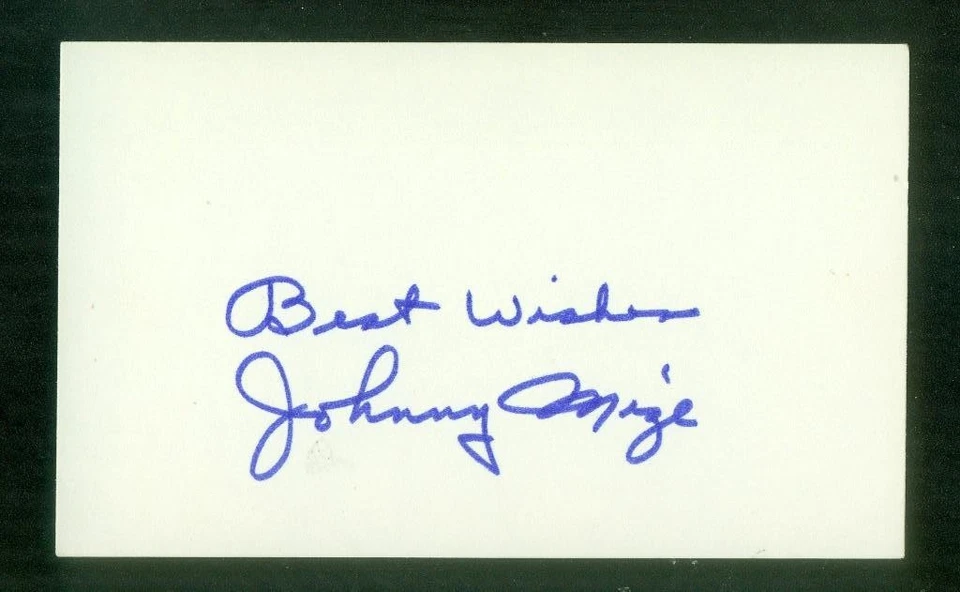 Best Wishes
Johnny Mize